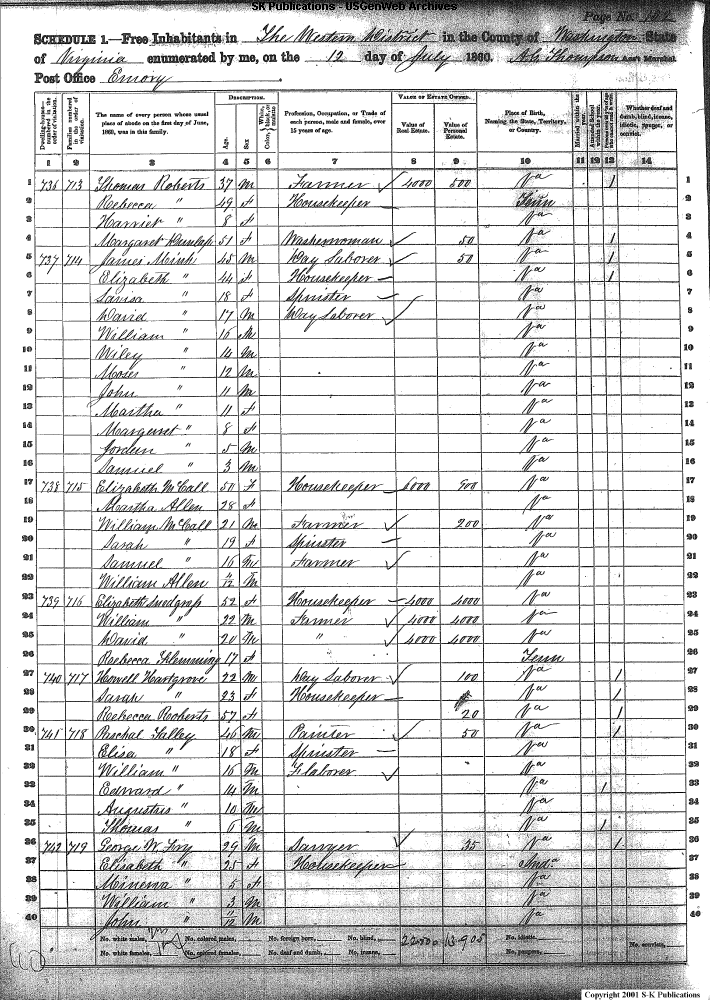 SK Publications - USGenWeb Archives
Page No.
SCHEDULE 1.—Free Inhabitants in The Western District in the County of Washington State
of Virginia enumerated by me, on the 12 day of July 1860. Thompson Ass't Marshal
Post Office Emory
Dwelling-houses—numbered in the order of visitation. Families numbered in the order of visitation. The name of every person whose usual place of abode on the first day of June, 1860, was in this family. DESCRIPTION. Age. Sex Color, White, black, or mulatto Profession, Occupation, or Trade of each person, male and female, over 15 years of age. VALUE OF ESTATE OWNED. Value of Real Estate. Value of Personal Estate. Place of Birth, Naming the State, Territory, or Country. Married within the year. Attended School within the year. Whether deaf and dumb, blind, insane, idiotic, pauper, or convict.
1 2 3 4 5 6 7 8 9 10 11 12 13 14
1 736 713 Thomas Roberts 37 M Farmer 4000 500 Va / 1
2 Rebecca " 49 F Housekeeper Tenn 2
3 Harriet " 8 F Va 3
4 Margaret Dunlap 51 F Washerwoman 50 Va / 4
5 737 714 James Mink 45 M Day Laborer 50 Va / 5
6 Elizabeth " 44 F Housekeeper Va / 6
7 " 18 F Spinster Va 7
8 David " 17 M Day Laborer Va 8
9 William " 16 M Va 9
10 Wiley " 14 M Va 10
11 Moses " 12 M Va 11
12 John " 11 M Va 12
13 Martha " 11 F Va 13
14 Margaret " 8 F Va 14
15 " 5 M Va 15
16 Samuel " 3 M Va 16
17 738 715 Elizabeth McCall 50 F Housekeeper 6000 Va 17
18 Martha Allen 28 F Va 18
19 William McCall 21 M Farmer 200 Va 19
20 Sarah " 19 F Spinster Va 20
21 Samuel " 16 M Farmer Va 21
22 William Allen 11/12 M Va 22
23 739 716 Elizabeth Snodgrass 52 F Housekeeper 4000 4000 Va 23
24 William " 22 M Farmer 4000 4000 Va 24
25 David " 20 M " 4000 4000 Va 25
26 Rebecca Flemming 17 F Tenn 26
27 740 717 Howell Hartgrove 22 M Day Laborer 100 Va / 27
28 Sarah " 23 F Housekeeper Va / 28
29 Rebecca Roberts 57 F 20 Va / 29
30 741 718 Paschal Talley 46 M Painter 50 Va / 30
31 Elisa " 18 F Spinster Va 31
32 William " 16 M F. laborer Va 32
33 Edward " 14 M Va / 33
34 Augustus " 10 M Va 34
35 Thomas " 6 M Va / 35
36 742 719 George W. Fry 29 M Sawyer 35 Va / 36
37 Elizabeth " 25 F Housekeeper Inda 37
38 Minerva " 5 F Va 38
39 William " 3 M Va 39
40 John " 11/12 M Va 40
No. white males, No. colored males, No. foreign born, No. blind, 22000 13905 No. idiotic,
No. white females, No. colored females, No. deaf and dumb, No. insane, No. paupers, No. convicts,
Copyright 2001 S-K Publications